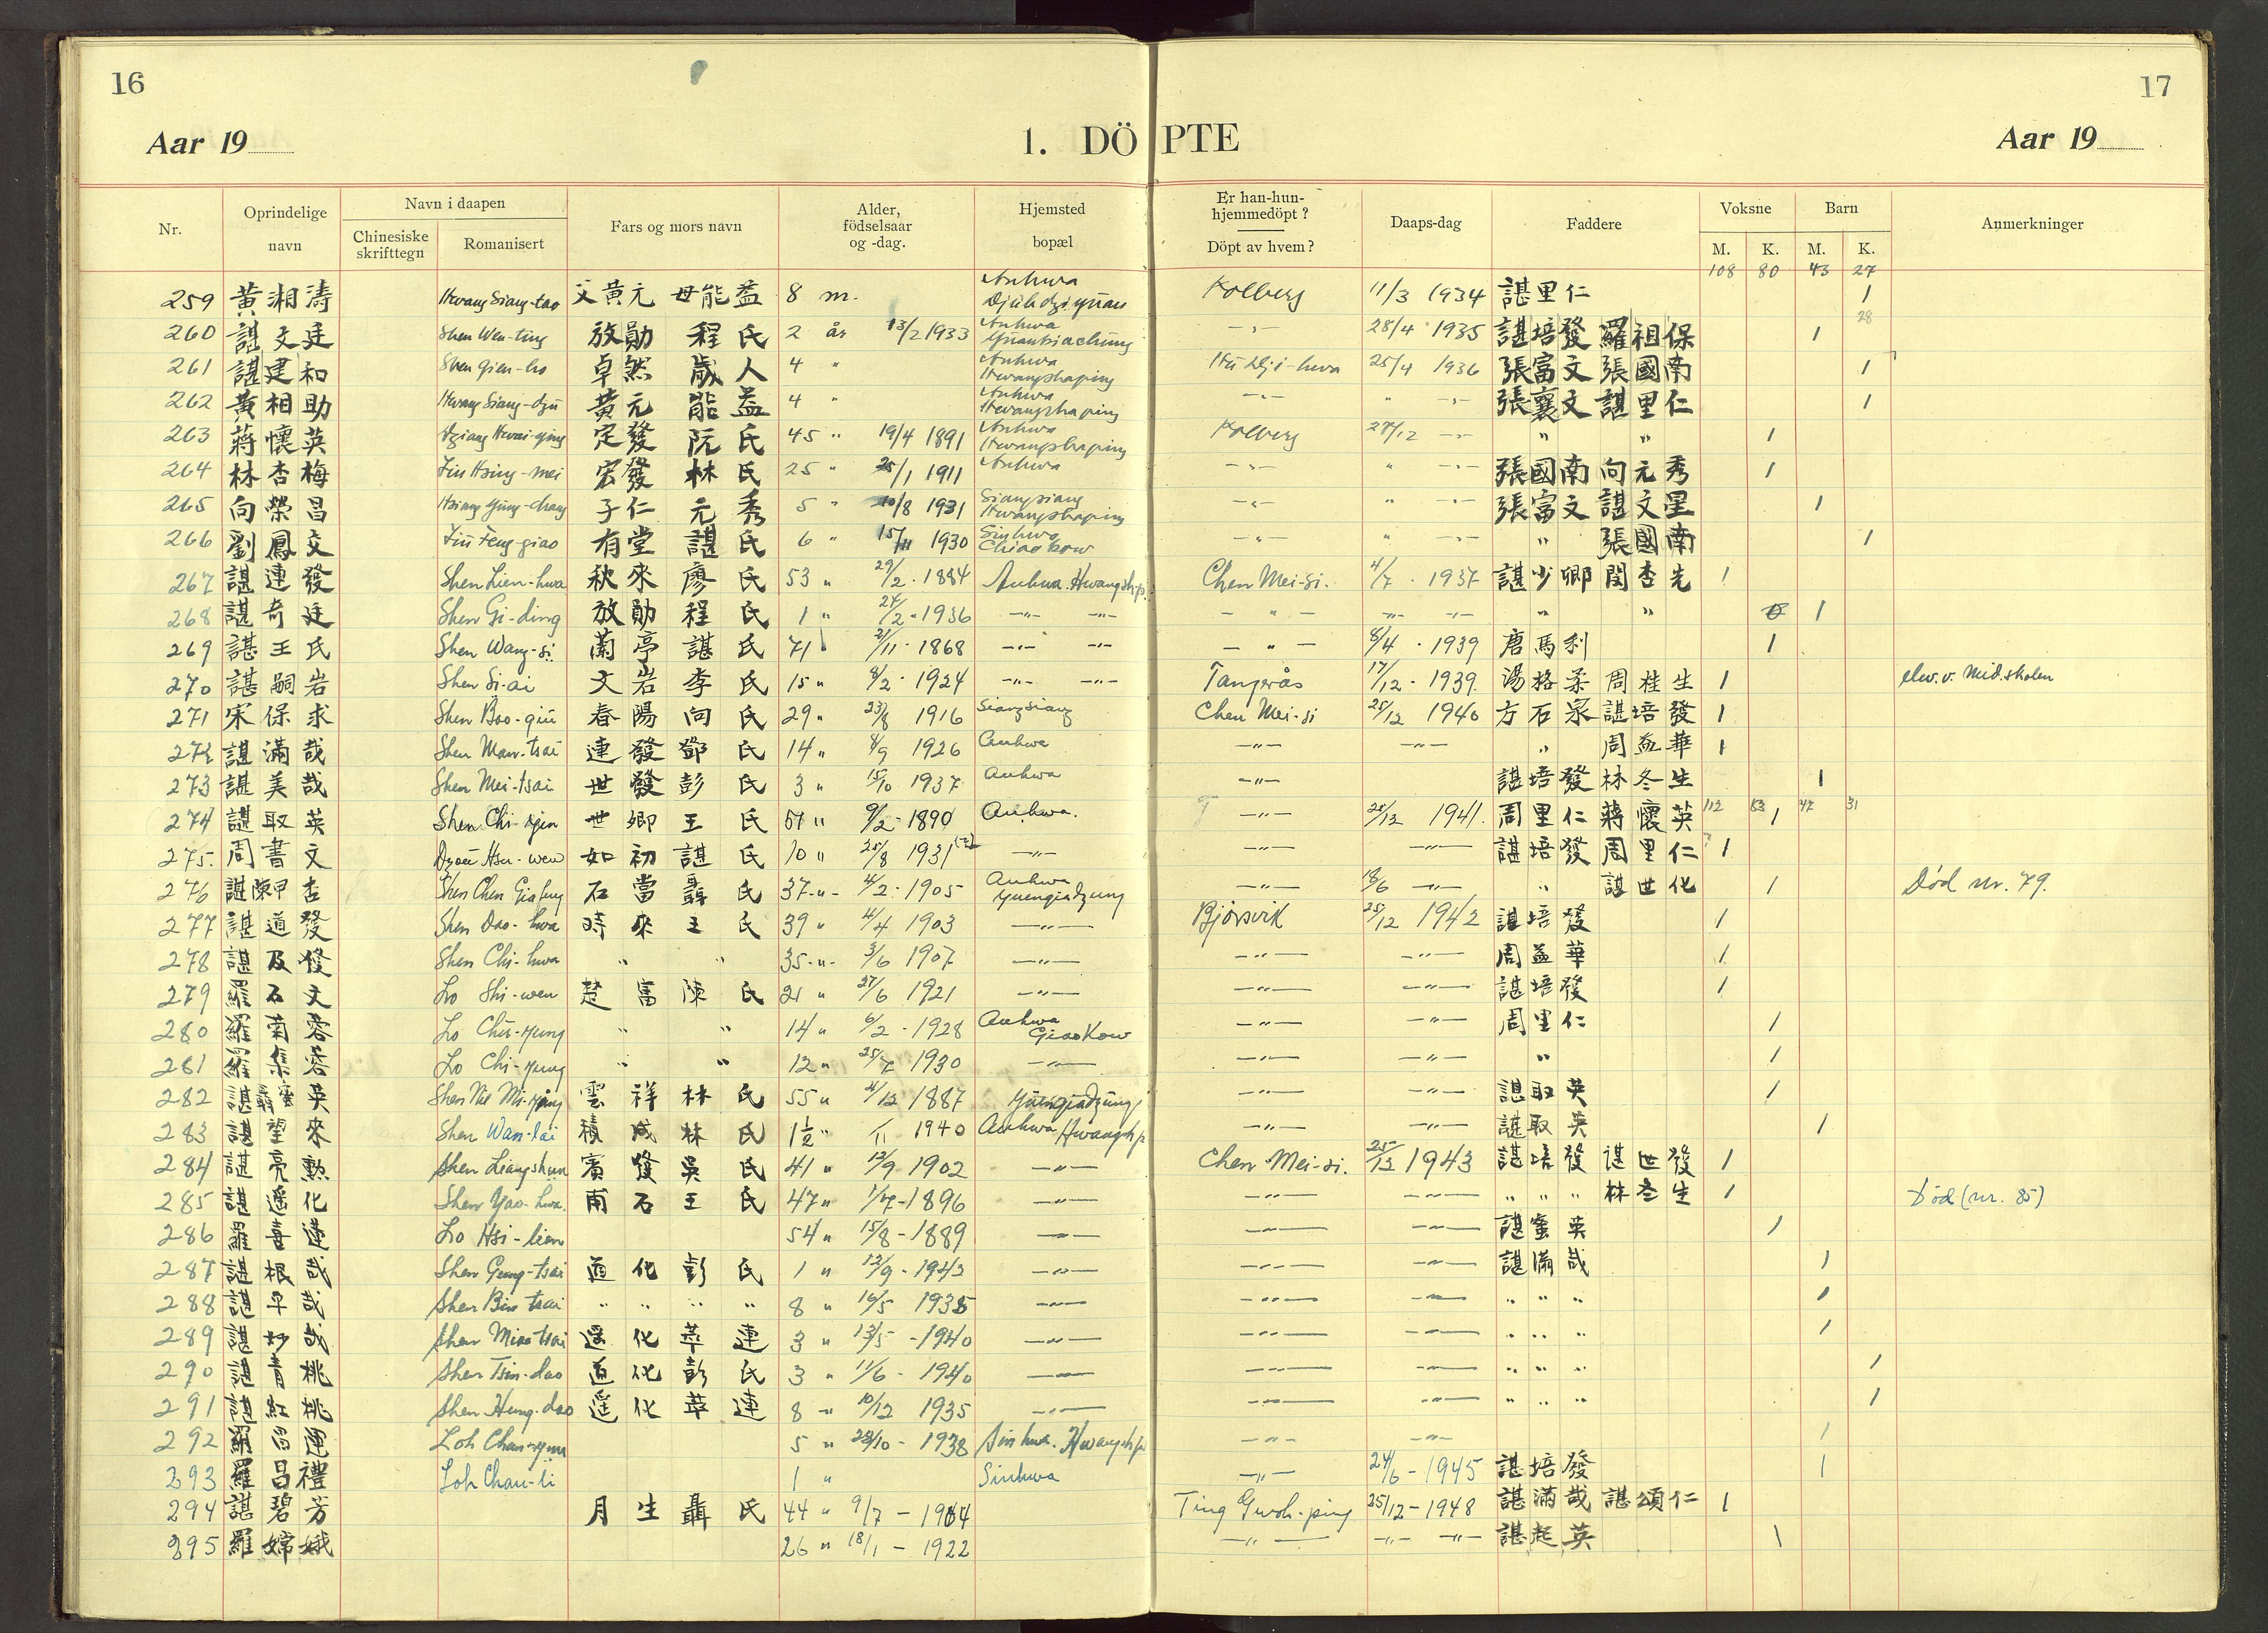 16
17
Aar 19
1. DÖPTE
Aar 19
Nr. Oprindelige navn Navn i daapen Chinesiske skrifttegn Romanisert Fars og mors navn Alder, födselsaar og -dag. Hjemsted bopæl Er han-hun-hjemmedöpt? Döpt av hvem? Daaps-dag Faddere Voksne M. K. Barn M. K. Anmerkninger
108 80 43 27
259 黃湘濤 Hwang Siang-tao 父黃元 母能益 8 m. Anhwa Kolberg 11/3 1934 諶里仁 1
28
260 諶文廷 Shen Wen-ting 放勛 程氏 2 år 13/2 1933 Anhwa -"- 28/4 1935 諶培發 羅祖保 1
261 諶建和 Shen Gien-ho 卓然 歲人 4 " Anhwa Hwangshaping 25/4 1936 張富文 張國南 1
262 黃相助 Hwang Siang-dzu 黃元 能益 4 " Anhwa Hwangshaping -"- " -"- 張襄文 諶里仁 1
263 蔣懷英 Dziang Hwai-ying 定發 阮氏 45 " 19/4 1891 Anhwa Hwangshaping Kolberg 27/12 -"- " " 1
264 林杏梅 Lin Hsing-mei 宏發 林氏 25 " /1 1911 Anhwa -"- " -"- 張國南 向元秀 1
265 向榮昌 Hsiang Yung-chang 子仁 元秀 5 " 10/8 1931 Siangsiang Hwangshaping -"- " -"- 張富文 諶文星 1
266 劉鳳交 Liu Feng-giao 有堂 諶氏 6 " 15/11 1930 Sinhwa Chiaokow -"- " -"- " 張國南 1
267 諶連發 Shen Lien-hwa 秋來 廖氏 53 " 29/2 . 1884 Anhwa. Hwangshp. Chen Mei-si. 4/7 . 1937 諶少卿 閔杏先 1
268 諶奇廷 Shen Gi-ding 放勛 程氏 1 " 24/2 - 1936 -"- -"- - " - -"- -"- " " 1
269 諶王氏 Shen Wang-si 蘭亭 諶氏 71 21/11 . 1868 -"- -"- - " - 8/4 . 1939 唐馬利 1
270 諶嗣岩 Shen Si-ai 文岩 李氏 15 " 8/2 . 1924 -"- -"- Tangerås 17/12 . 1939. 湯格柔 周桂生 1 elev. v. Mid.skolen
271 宋保求 Shen Bao-giu 春陽 向氏 29 " 23/8 1916 Siangsiang Chen Mei-si 25/12 1940 方石泉 諶培發 1
272 諶滿哉 Shen Man-tsai 連發 鄧氏 14 " 4/9 1926 Anhwa -"- -"- " 周益華 1
273 諶美哉 Shen Mei-tsai 世發 彭氏 3 " 15/10 1937 Anhwa -"- 諶培發 林冬生 1
112 83 47 31
274 諶取英 Shen Chi-yin 世卿 王氏 51 " 9/2 - 1890 Anhwa. -"- 25/12 1941. 周里仁 蔣懷英 1
275. 周書文 Dzou Hsu-wen 如初 諶氏 10 " 25/8 1931 -"- -"- -"- 諶培發 周里仁 1
276 諶陳甲杏 石當 聶氏 37 -"- 4/2 . 1905 Anhwa Yuengiadzung -"- 18/6 -"- " 諶世化 1 Död nr. 79.
277 諶道發 Shen Dao-hwa 時來 王氏 39 " 4/4 1903 -"- Bjørsvik 25/12 1942 諶培發 1
278 諶及發 Shen Chi-hwa " " 35 -"- 3/6 1907 -"- -"- -"- 周益華 1
279 羅石文 Lo Shi-wen 楚富 陳氏 21 " 27/6 1921 -"- -"- -"- 諶培發 1
280 羅菊蓉 Lo Chü-yung " " 14 " 6/2 - 1928 Anhwa Giaokow -"- -"- 周里仁 1
281 羅集蓉 Lo Chi-yung " " 12 " 25/7 1930 -"- -"- -"- " 1
282 諶聶蜜英 Shen Nie Mi-ying 雲祥 林氏 55 " 4/12 1887 Yuengiadzung -"- -"- 諶取英 1
283 諶望來 Shen Wan-lai 積成 林氏 1½ " 1/11 1940 Anhwa Hwangshp -"- -"- 諶取英 1
284 諶亮勲 Shen Liang-shun 賓發 吳氏 41 " 12/9 1902 -"- Chen Mei-si. 25/12 1943 諶培發 諶世發 1
285 諶遥化 Shen Yao-hwa. 甫石 王氏 47 " 1/7 - 1896 -"- -"- -"- " " " 林冬生 1 Död (nr. 85)
286 羅喜蓮 Lo Hsi-lien 54 " 15/8 - 1889 -"- -"- -"- 諶蜜英 1
287 諶根哉 Shen Geng-tsai 道化 彭氏 1 " 12/9 - 1942 -"- -"- -"- 諶滿哉 1
288 諶平哉 Shen Bin tsai " " " " 8 " 16/5 1935 -"- -"- -"- " " " 1
289 諶妙哉 Shen Miao tsai 遥化 萃連 3 " 13/5 - 1940 -"- -"- -"- " " " 1
290 諶青桃 Shen Tsin-dao 道化 彭氏 3 " 1/6 - 1940 -"- -"- -"- " " " 1
291 諶紅桃 Shen Hung-dao 遥化 萃連 8 " 10/12 1935 -"- -"- -"- " " " 1
292 羅昌運 Loh Chan-yun 5 " 28/10 - 1938 Sinhwa. Hwangshp -"- -"- 1
293 羅昌禮 Loh Chan-li 1 " Sinhwa -"- 24/6 - 1945 諶培發 1
294 諶碧芳 月生 聶氏 44 " 9/7 - 1904 Ting Gwoh-ping 25/12 - 1948 諶滿哉 諶頌仁 1
295 羅嫦娥 26 " 18/1 - 1922 -"- -"- -"- 諶起英 1